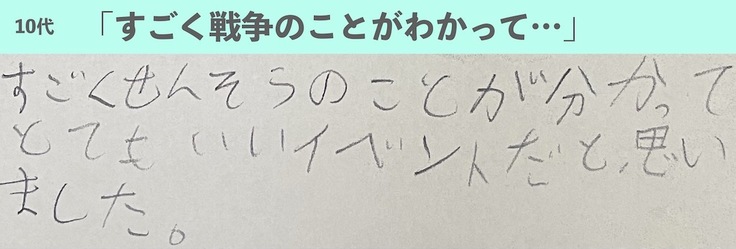 10代 「すごく戦争のことがわかって…」
すごくせんそうのことが分かって
とてもいいイベントだと、思い
ました。